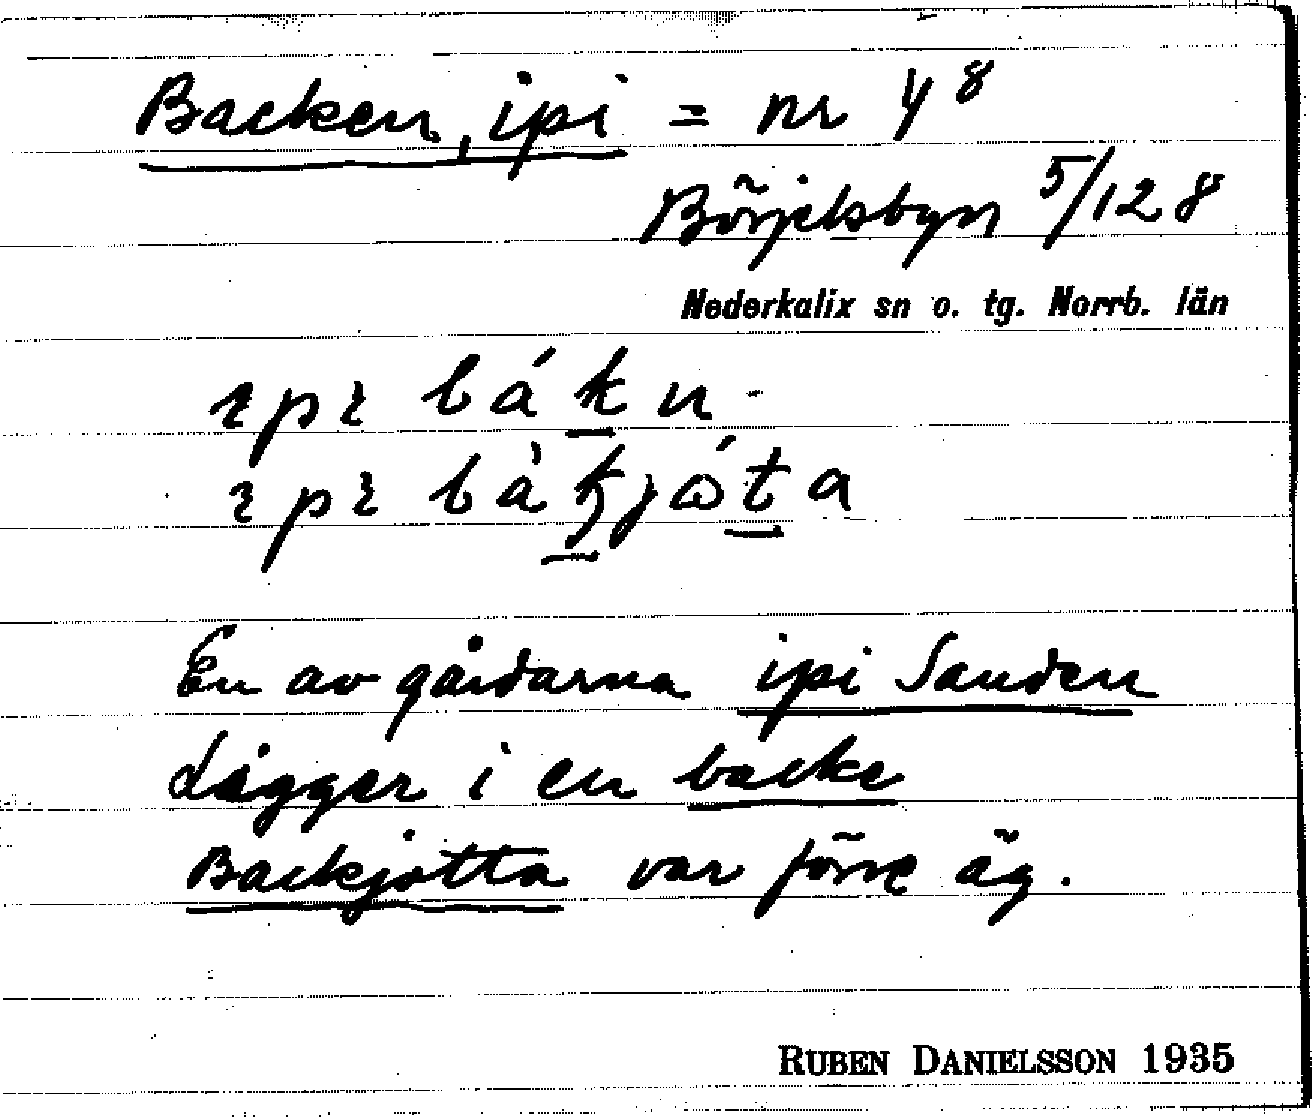 Backen, ipi = nr 4⁸
Börjelsbyn 5/128
Nederkalix sn o. tg. Norrb. län
ıpı báku
ıpı bàkjóta
En av gårdarna ipi Sanden
Lägger i en backe
Backjotta var förre äg.
RUBEN DANIELSSON 1935